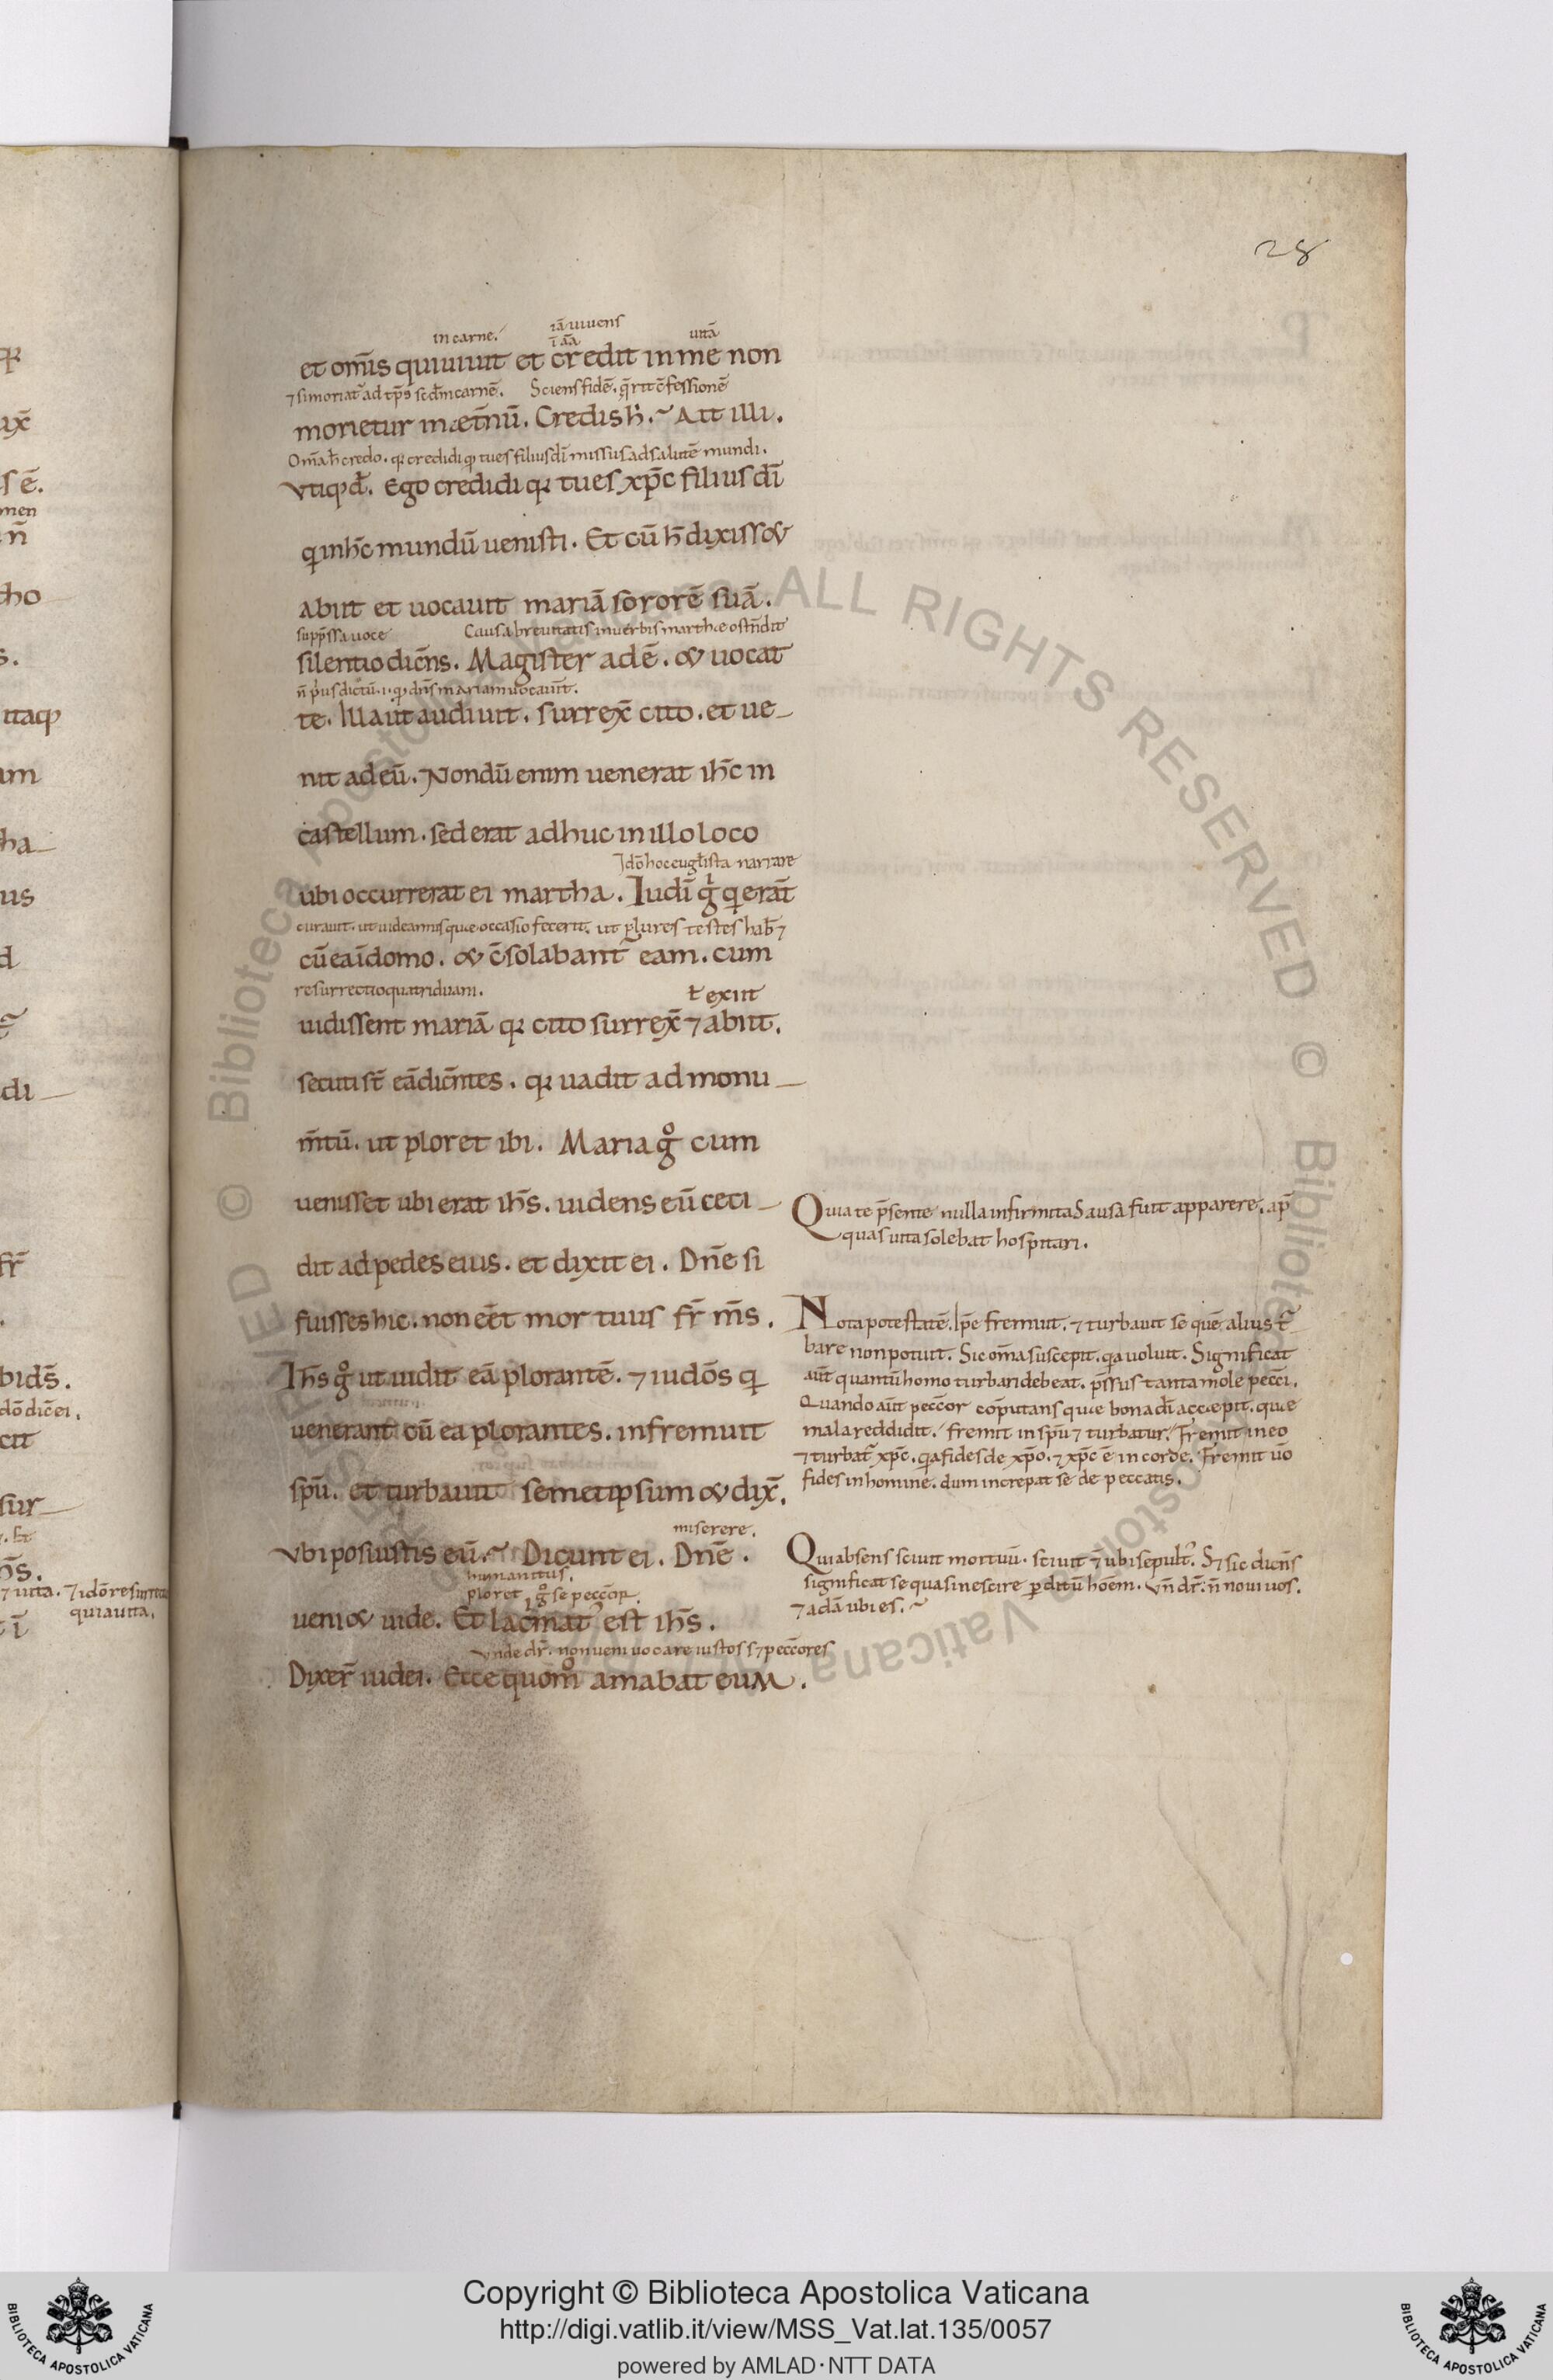 28
in carne.
iā uiuens
ī aīa
uitā
et om̄is qui uiuit et credit in me non
⁊ si moriat᷒ ad tp̄s sed̄m carnē. Sciens fidē. q̄rit c̄fessionē
morietur in æt̄nū. Credis h̄. Ait illi.
Om̄a h̄ credo. qꝛ credidi qꝫ tu es filius dī missus ad salutē mundi.
Vtiqꝫ d̄. Ego credidi qꝛ tu es xp̄c filius dī
q̣ in h̄c mundū uenisti. Et cū h̄ dixisset
abiit et uocauit mariā sororē suā.
supp̄ssa uoce Causa breuitatis in uerbis marthæ ost̄ndit
silentio dic̄ns. Magister adē. & uocat
n̄ p̄us dictū. qꝫ dn̄s mariam uocauit.
te. Illa aut̄ audiuit. surrex̄ cito. et ue
nit ad eū. Nondū enim uenerat ih̄c in
castellum. sed erat adhuc in illo loco
Idō hoc euglīsta narrare
ubi occurrerat ei martha. Iudī gͥ qui erāt
curauit. ut uideamus que occasio fecerit. ut plures testes hab̄⁊
cū ea ī domo. & c̄solabant᷒ eam. cum
resurrectio quatriduani.
ł exiit
uidissent mariā qꝛ cito surrex̄ ⁊ abiit.
secuti st̄ eā dic̄ntes. qꝛ uadit ad monu
m̄tū. ut ploret ibi. Maria gͦ cum
uenisset ubi erat ih̄s. uidens eū ceci
dit ad pedes eius. et dixit ei. Dn̄e si
fuisses hic. non eēt mortuus fr̄ m̄s.
Ih̄s gͦ ut uidit eā plorantē. ⁊ iudōs qui
uenerant cū ea plorantes. infremuit
sp̄u. et turbauit semetipsum & dix̄.
miserere.
Vbi posuistis eū. Dicunt ei. Dn̄e.
humanitus.
ploret gͦ se peccōr.
ueni & uide. Et lac̄mat᷒ est ih̄s.
Vnde dr̄. non ueni uocare iustos s⁊ peccōres
Dixer̄ iudei. Ecce quom̊ amabat eum.
Quia te p̄sente nulla infirmitas ausa fuit apparere. ap̄
quas uita solebat hospitari.
Nota potestatē. Ip̄e fremuit. ⁊ turbauit se quē alius t᷒
bare non potuit. Sic om̄a suscepit. quia uoluit. Significat
aut̄ quantū homo turbari debeat. p̄ssus tanta mole pecc̄i.
Quando aut̄ pecc̄or cōputans que bona dī accepit. que
mala reddidit. fremit in sp̄u ⁊ turbatur. Fremit in eo
⁊ turbat᷒ xp̄c. quia fides de xp̄o. ⁊ xp̄c ē in corde. Fremit ūo
fides in homine. dum increpat se de peccatis.
Qui absens sciuit mortuū. sciuit ⁊ ubi sepult᷒. S⁊ sic dic̄ns
significat se quasi nescire p̱ditū hoēm. Vn̄ dr̄. n̄ noui uos.
⁊ adā ubi es.
Copyright © Biblioteca Apostolica Vaticana
http://digi.vatlib.it/view/MSS_Vat.lat.135/0057
powered by AMLAD·NTT DATA